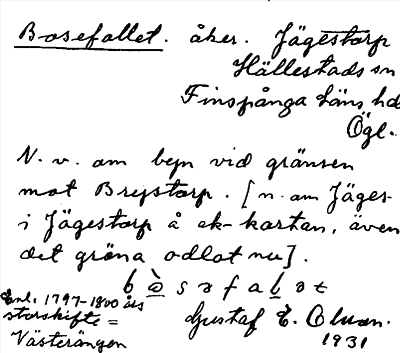 Bosefallet. åker. Jägestorp
Hällestads sn
Finspånga läns hd
Ögl.
N. v. om byn vid gränsen
mot Brystorp. [n. om Jäges-
i Jägestorp å ek-kartan, även
det gröna odlat nu].
b o s ə f a l ə t
Enl. 1797-1800 års
storskifte =
Västerängen
Gustaf E. Olsson.
1931